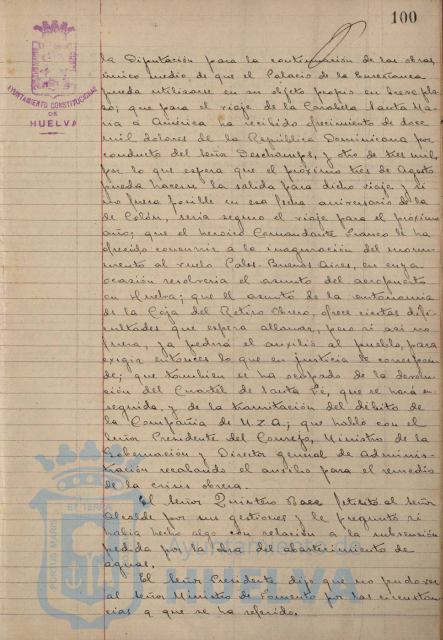 100
AYUNTAMIENTO CONSTITUCIONAL
DE
HUELVA
la Diputación para la continuación de las obras,
único medio, de que el Palacio de la Enseñanza
pueda utilizarse en su objeto propio en breve pla-
zo; que para el viaje de la Carabela Santa Ma-
ria a América ha recibido ofrecimiento de doce
mil dolares de la República Dominicana por
conducto del Señor Deschamps, y otro de tres mil,
por lo que espera que el próximo tres de Agosto
pueda hacerse la salida para dicho viaje y si
no fuera posible en esa fecha aniversario de la
de Colón, seria seguro el viaje para el próximo
año; que el heroico Comandante Franco le ha
ofrecido concurrir a la inauguración del monu-
mento al vuelo Palos-Buenos Aires, en cuya
ocasión resolveria el asunto del aeropuerto
en Huelva; que el asunto de la autonomia
de la Caja del Retiro Obrero, ofrece ciertas difi-
cultades que espera allanar, pero si asi no
fuera, ya pedirá el auxilio al pueblo, para
exigir entonces lo que en justicia le correspon-
de; que tambien se ha ocupado de la devolu-
ción del Cuartel de Santa Fé, que se hará en-
seguida, y de la tramitación del débito de
la Compañia de M.Z.A.; que habló con el
Señor Presidente del Consejo, Ministro de la
Gobernación y Director general de Adminis-
tración recabando el auxilio para el remedio
de la crisis obrera.
El Señor Quintero Baez felicitó al Señor
Alcalde por sus gestiones y le preguntó si
habia hecho algo con relación a la subvención
pedida por la obra del abastecimiento de
aguas.
El Señor Presidente dijo que no pudo ver
al Señor Ministro de Fomento por las circunstan-
cias a que se ha referido.
PORTUS MARIS ET TERRAE
Ayuntamiento de
HUELVA